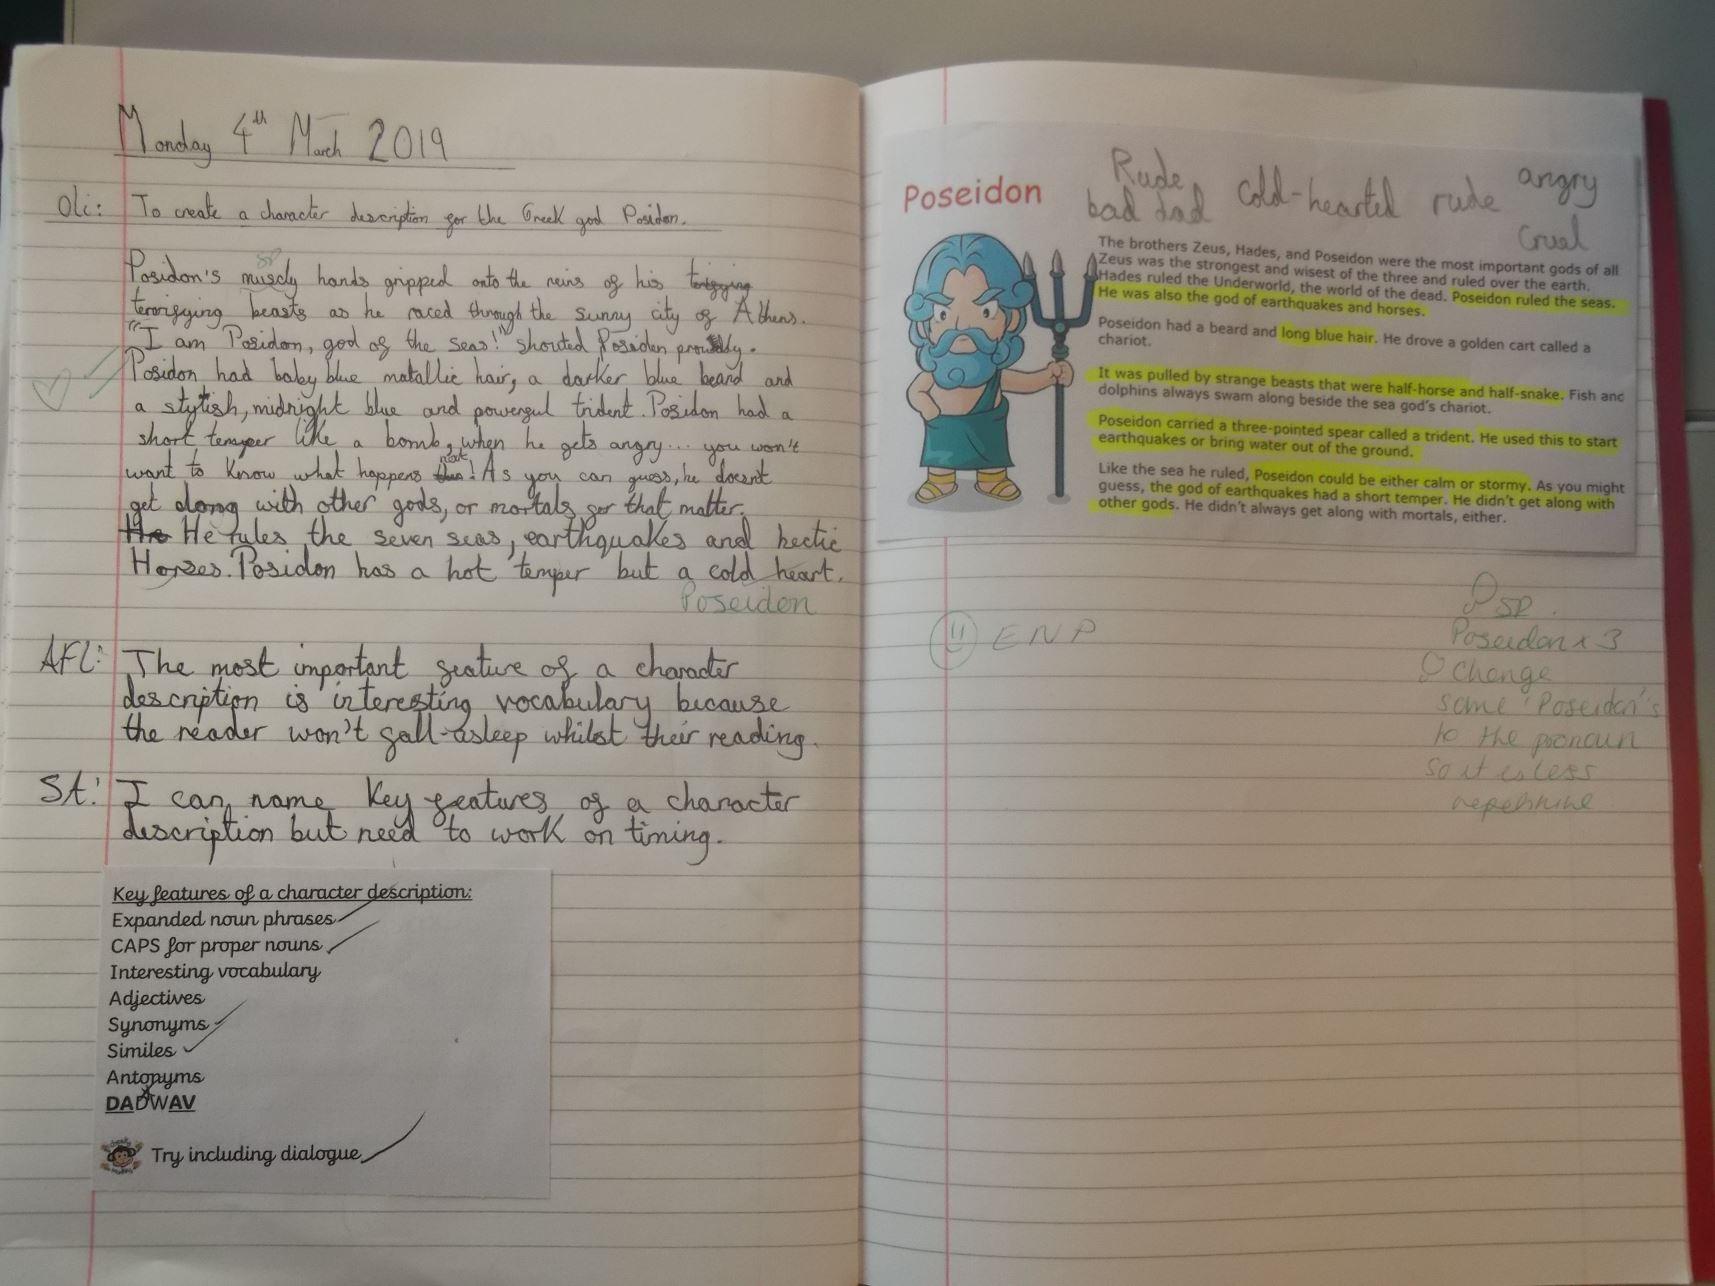 Monday 4th March 2019
Oli: To create a character description for the Greek god Posidon.
sp
Posidon's muscly hands gripped onto the reins of his
terrifying beasts as he raced through the sunny city of Athens.
"I am Posidon, god of the seas!" shouted Posidon proudly.
Posidon had baby blue matallic hair, a darker blue beard and
a stylish, midnight blue and powerful trident. Posidon had a
short temper like a bomb, when he gets angry... you won't
want to know what happens next! As you can guess, he doesn't
get along with other gods, or mortals for that matter.
He rules the seven seas, earthquakes and hectic
Horses. Posidon has a hot temper but a cold heart.
Poseidon
AFL: The most important feature of a character
description is interesting vocabulary because
the reader won't fall asleep whilst their reading.
SA: I can name key features of a character
description but need to work on timing.
Key features of a character description:
Expanded noun phrases
CAPS for proper nouns
Interesting vocabulary
Adjectives
Synonyms
Similes
Antonyms
DADWAV
Try including dialogue
Poseidon
Rude
bad dad
cold-hearted
rude
angry
Cruel
The brothers Zeus, Hades, and Poseidon were the most important gods of all
Zeus was the strongest and wisest of the three and ruled over the earth.
Hades ruled the Underworld, the world of the dead. Poseidon ruled the seas.
He was also the god of earthquakes and horses.
Poseidon had a beard and long blue hair. He drove a golden cart called a
chariot.
It was pulled by strange beasts that were half-horse and half-snake. Fish and
dolphins always swam along beside the sea god's chariot.
Poseidon carried a three-pointed spear called a trident. He used this to start
earthquakes or bring water out of the ground.
Like the sea he ruled, Poseidon could be either calm or stormy. As you might
guess, the god of earthquakes had a short temper. He didn't get along with
other gods. He didn't always get along with mortals, either.
ENP
sp.
Poseidon x 3
Change
some 'Poseidon's
to the pronoun
so it is less
repetitive